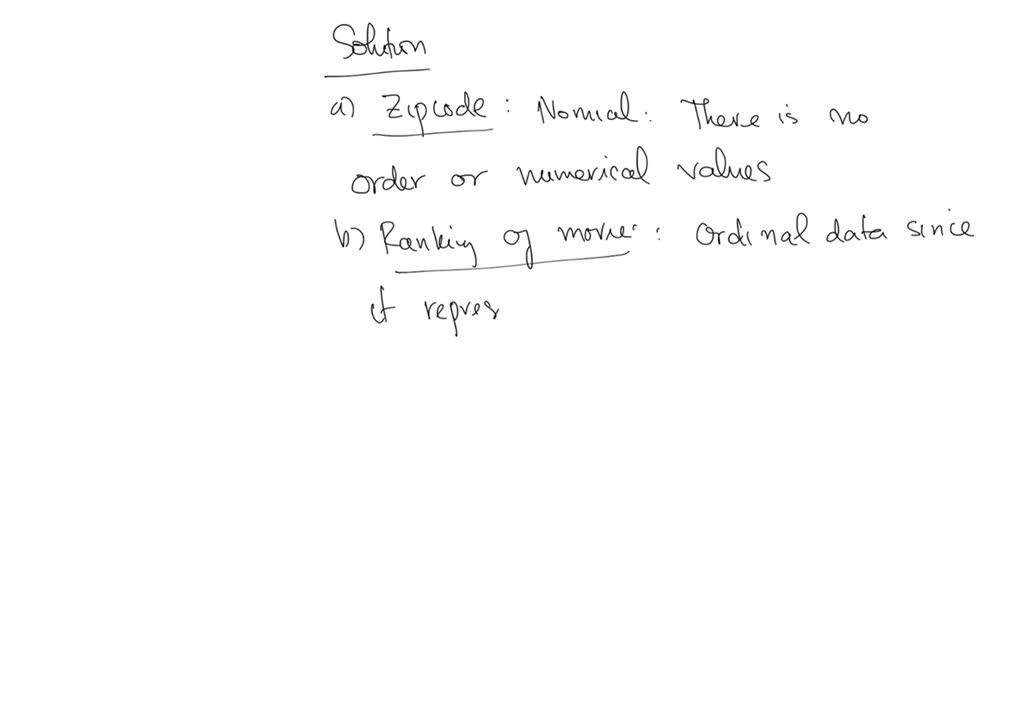 Solution
a) Zipcode : Nomial. There is no
order or numerical values
b) Ranking of movie : Ordinal data since
it repres